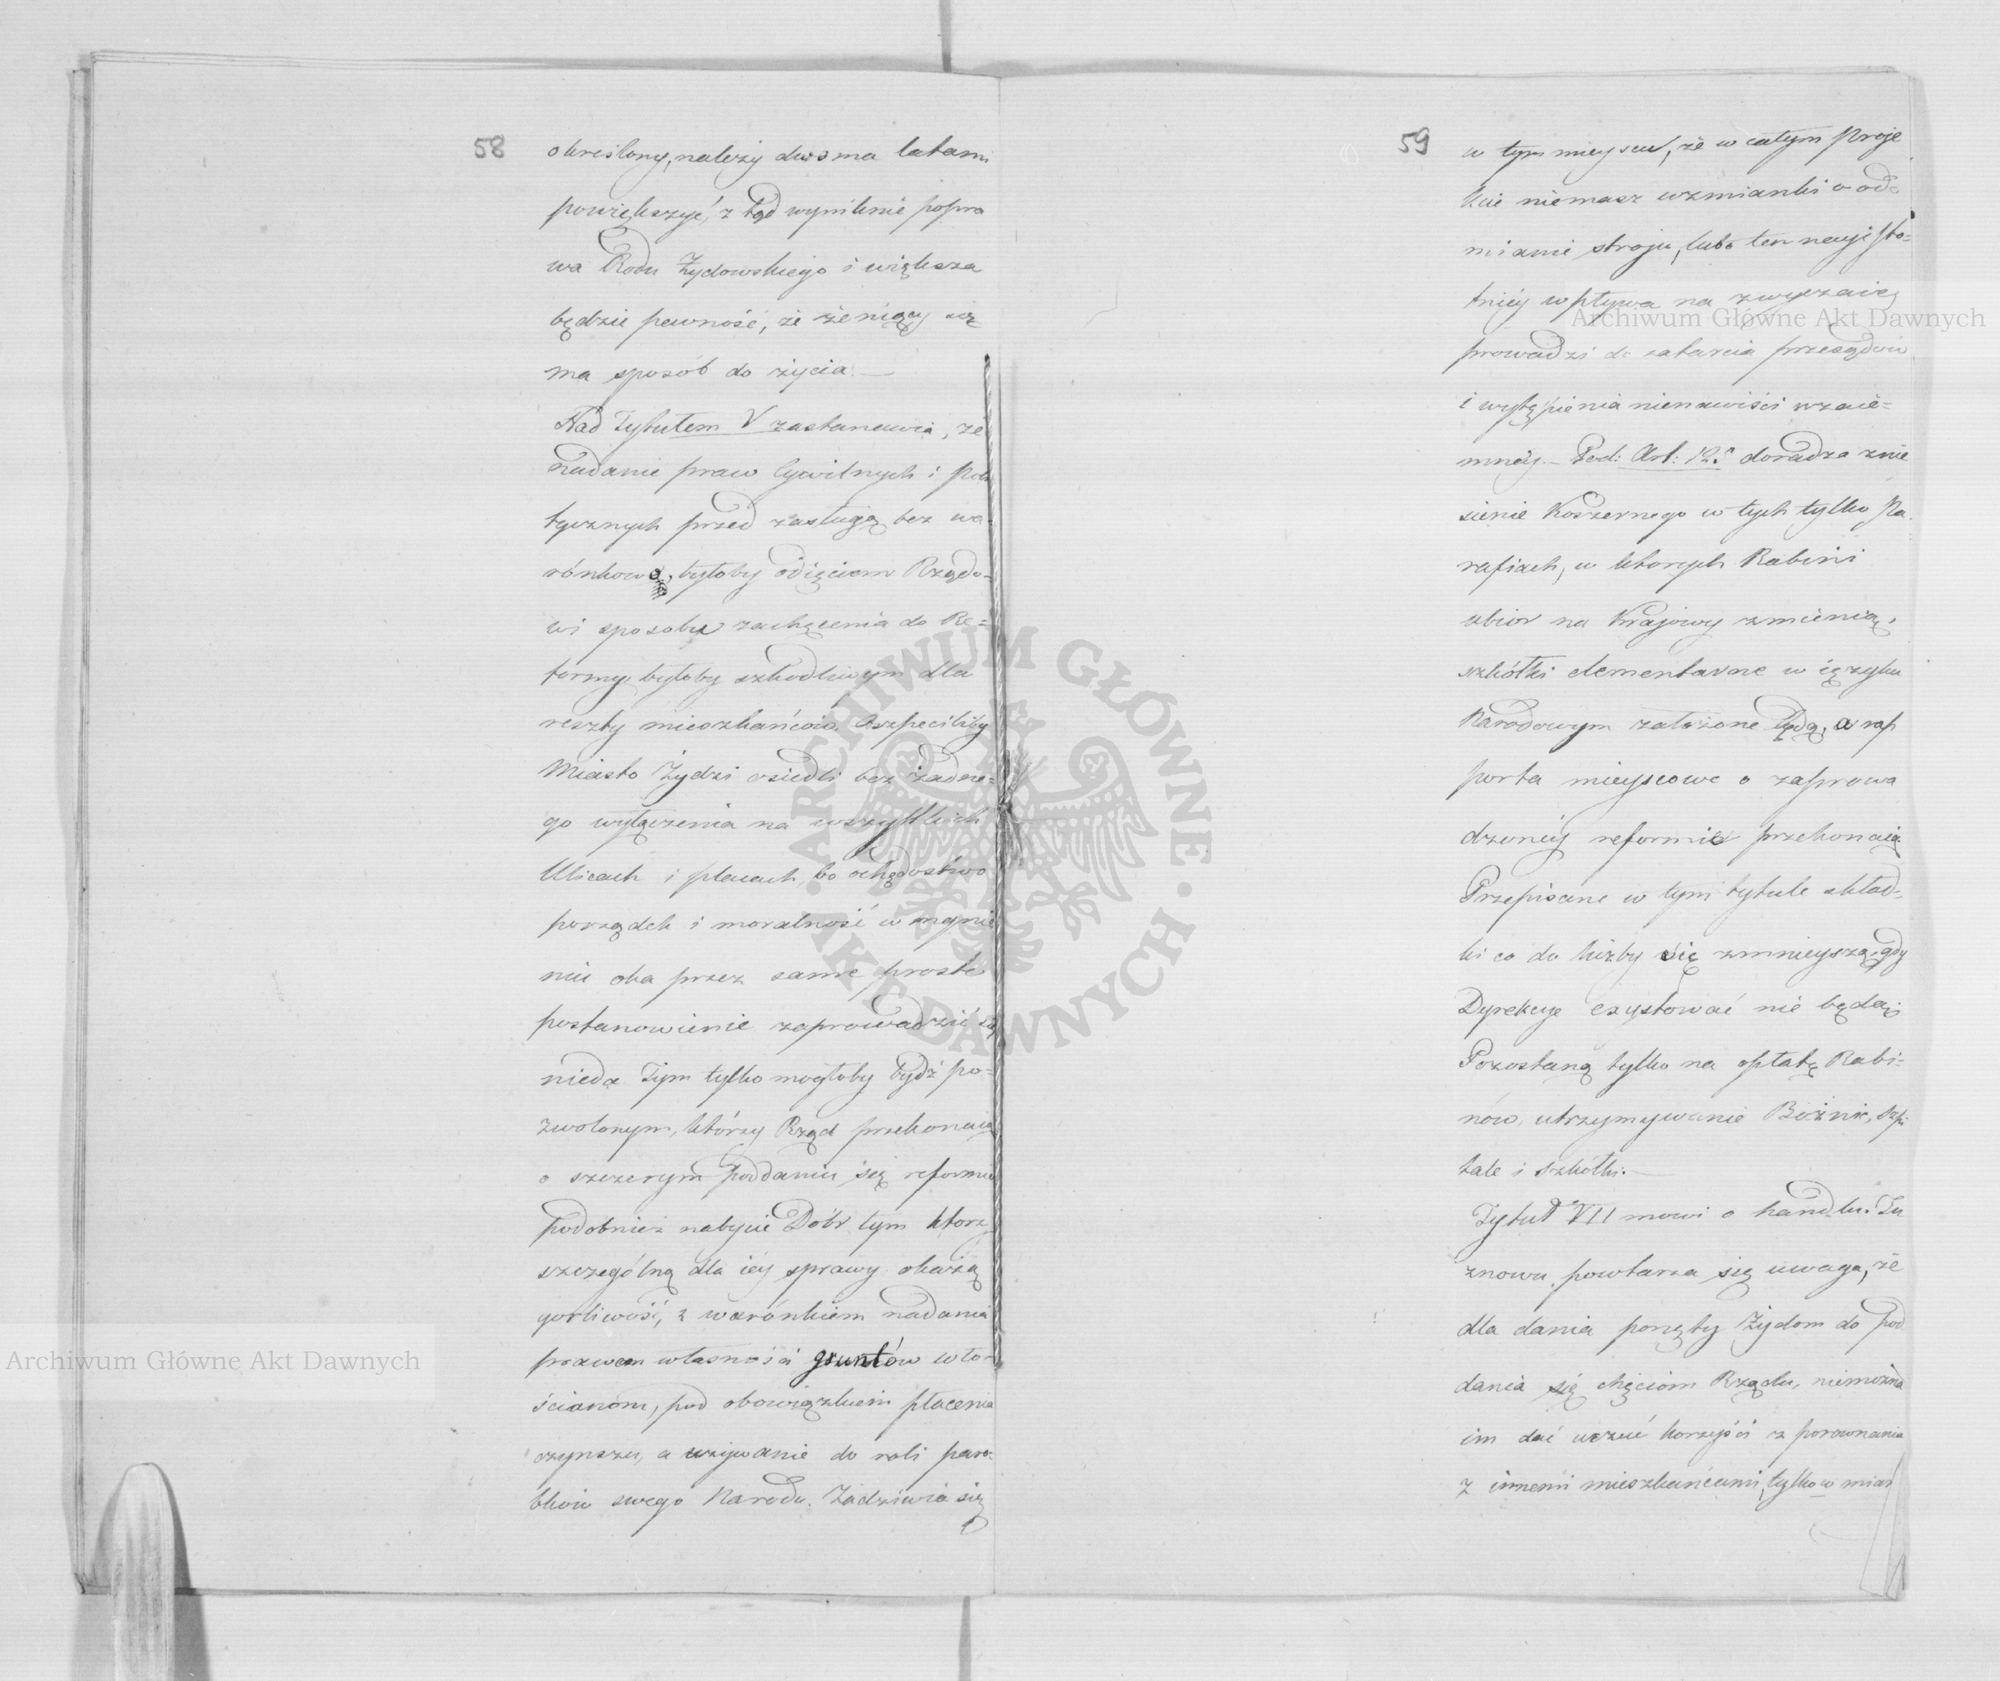 58
określony, należy dwoma latami
powiększyć, z tąd wyniknie popra
wa Rodu Żydowskiego i większa
będzie pewność, że żeniący się
ma sposób do życia. —
Nad Tytułem V zastanawia, że
nadanie praw Cywilnych i poli
tycznych przed zasługą bez wa-
rónkowe, byłoby odięciem Rządo-
wi sposobu zachęcenia do Re-
formy, byłoby szkodliwym dla
reszty mieszkańców. Oszpeciliby
Miasto Żydzi osiedli bez żadne-
go wyłączenia na wszystkich
Ulicach i placach, bo ochędostwo
porządek i moralność w mgnie
niu oka przez samo proste
postanowienie zaprowadzić się
nieda. Tym tylko mogłoby bydź po-
zwolonym, którzy Rząd przekonaią
o szczerym poddaniu się reformie
podobnież nabycie Dóbr tym ktorz
szczególną dla iéy sprawy okażą
gorliwość, z warónkiem nadania
prawem własności gruntów wło-
ścianom, pod obowiązkiem płacenia
czynszu, a używanie do roli paro-
bków swego Narodu. Zadziwia się
59
w tym mieyscu, że w całym proje
kcie niemasz wzmianki o od-
mianie stroju, lubo ten nayisto-
tniéy wpływa na zwyczaie,
prowadzi do zatarcia przesądów
i wytępienia nienawiści wzaie-
mnéy. — Pod: Art: 12. doradza znie
sienie Koszernego w tych tylko Pa-
rafiach, w których Rabini
ubior na Krajowy zmienią,
szkółki elementarne w ięzyku
Narodowym założone będą, a rap
porta mieyscowe o zaprowa
dzonéy reformie przekonaią
Przepisane w tym tytule skład-
ki co do liczby się zmnieyszą, gdy
Dyrekcye exystować nie będą;
Pozostaną tylko na opłatę Rabi-
nów, utrzymywanie Bóżnic, Szpi
tale i szkółki. —
Tytuł VII mowi o handlu. Tu
znowu powtarza się uwaga, że
dla dania ponęty Żydom do pod
dania się chęciom Rządu, niemożna
im dać uczuć korzyści z porownania
z innemi mieszkańcami, tylko w miar
Archiwum Główne Akt Dawnych
Archiwum Główne Akt Dawnych
ARCHIWUM GŁÓWNE AKT DAWNYCH